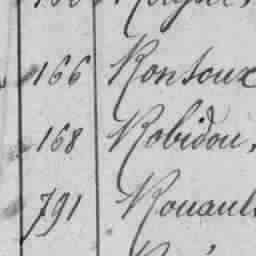 166 Ronsoux
168 Robidou,
791 Rouaul